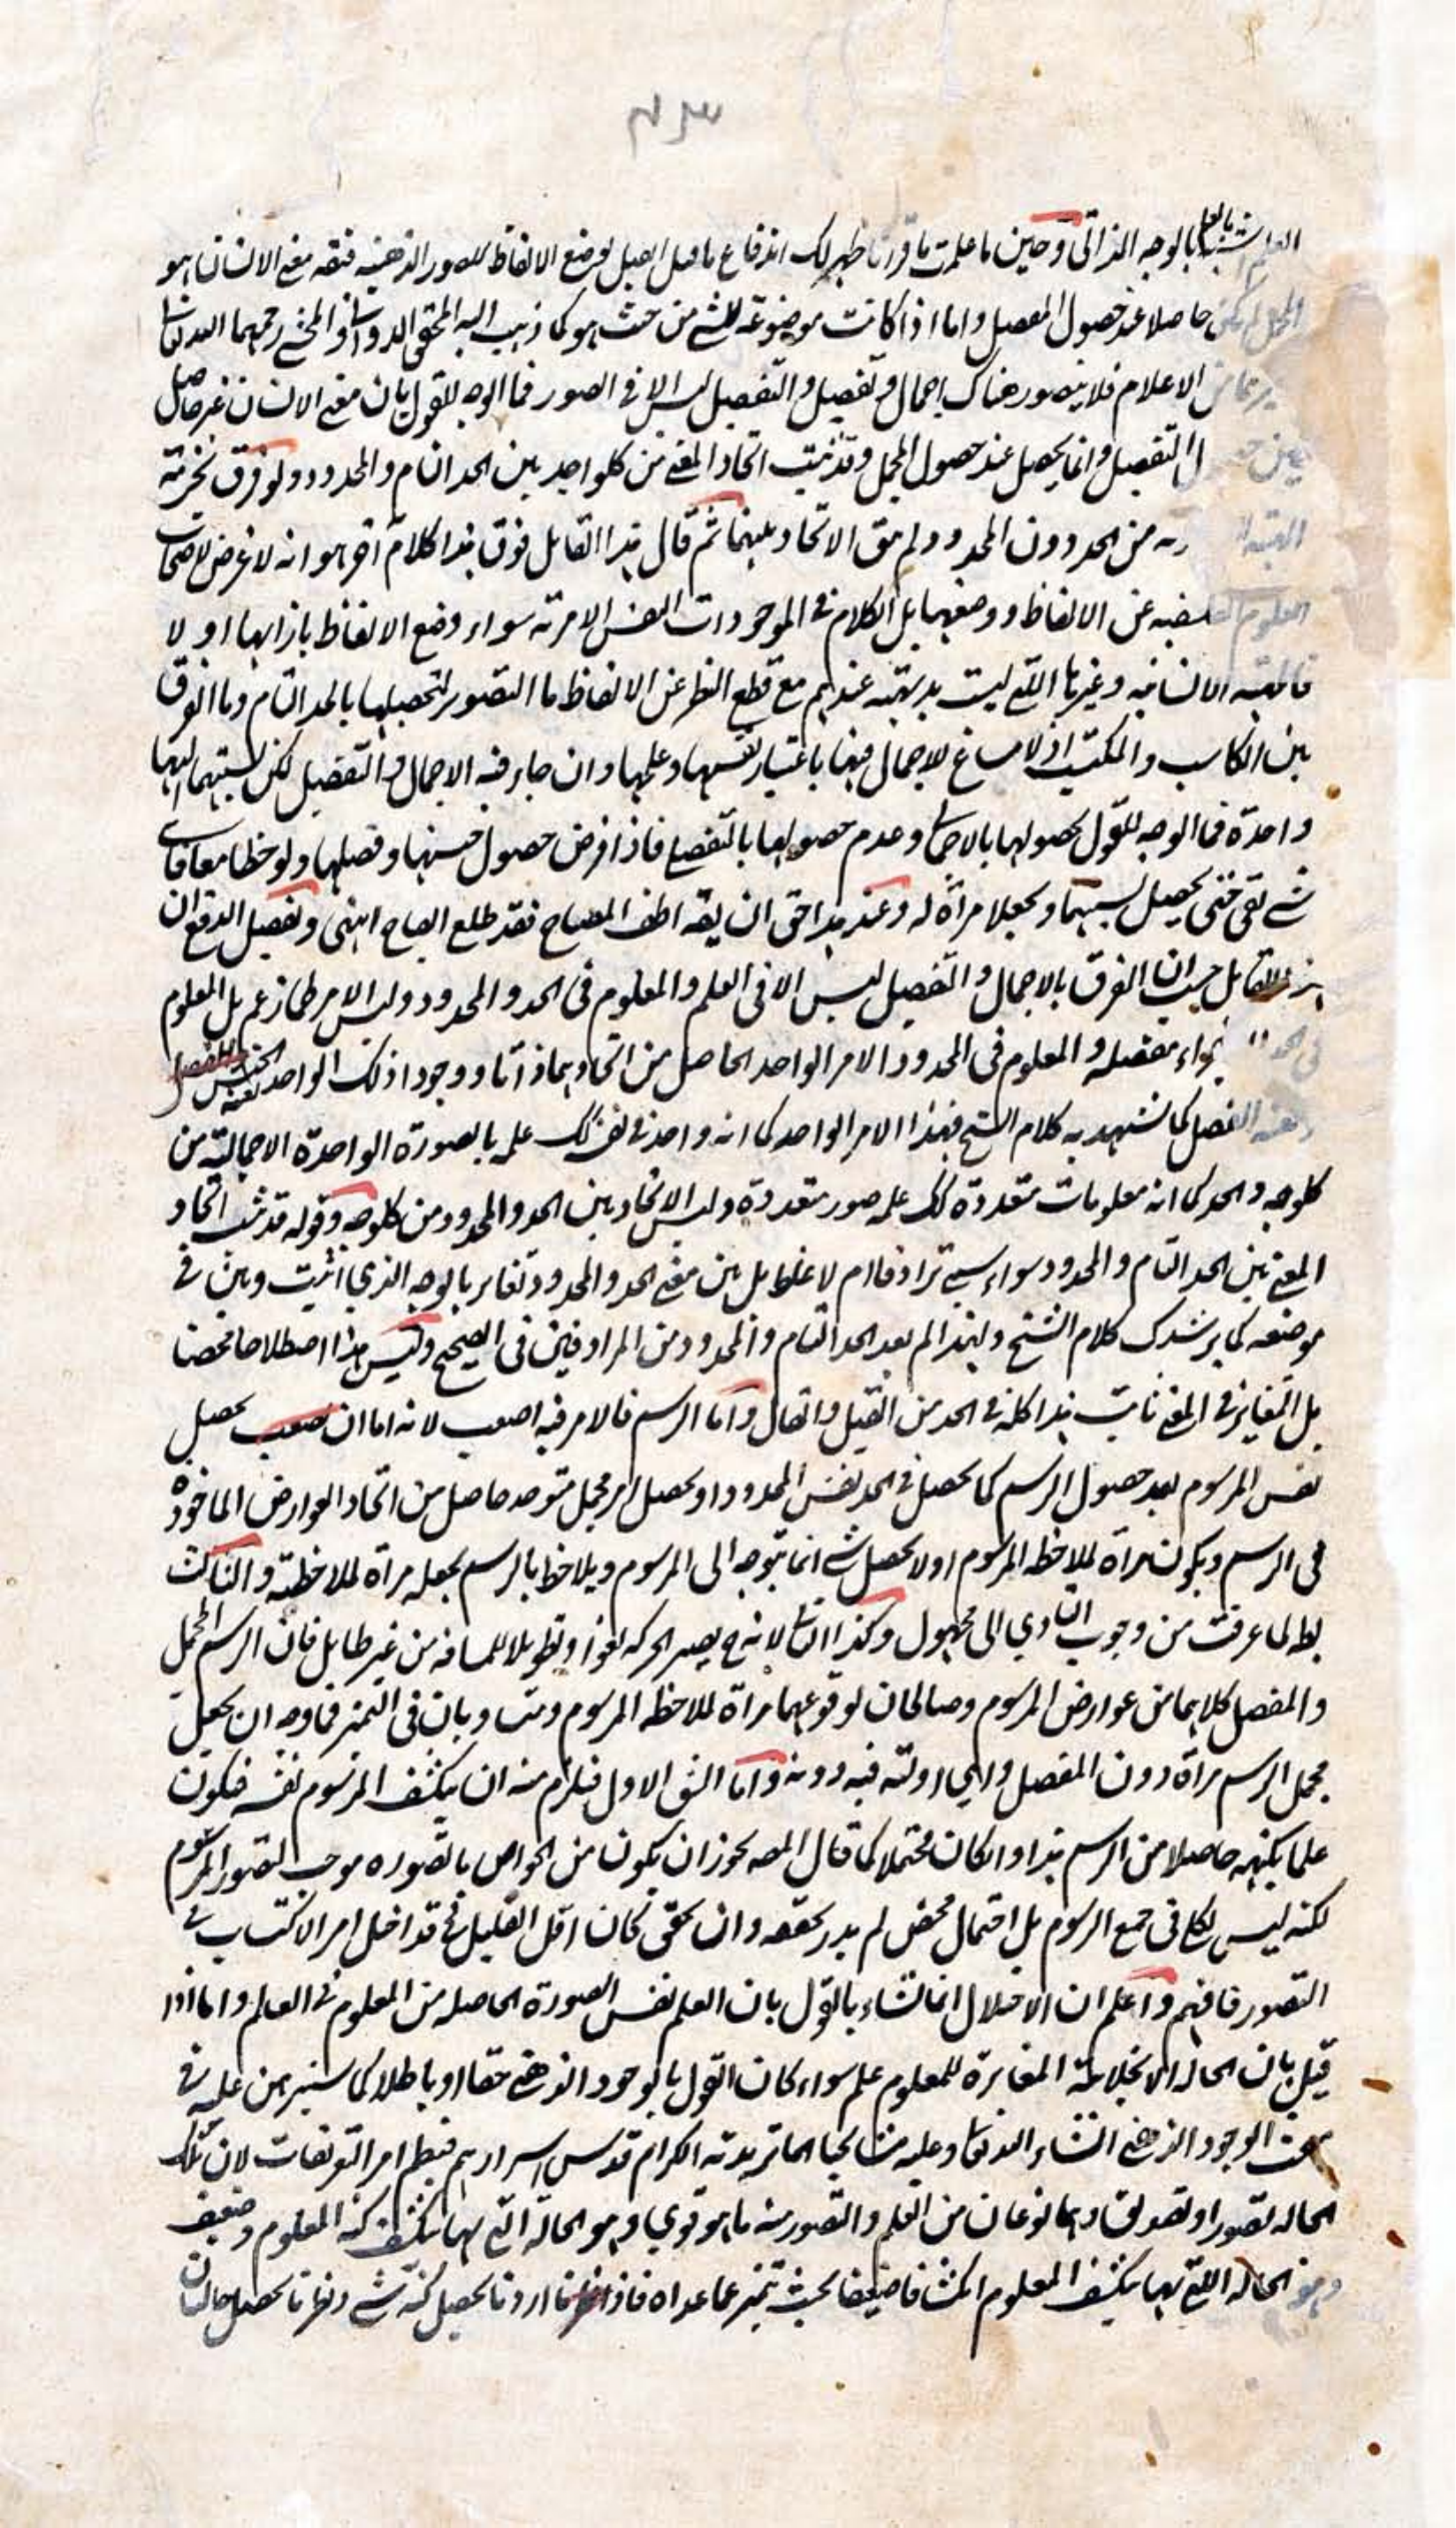 بالوجه الذاتى وحين ما علمت ما قررنا ظهر لك اندفاع ما قيل وضع الالفاظ للصور الذهنيه معنى الانسان هو
المجمل حاصلا عند حصول المفصل واما اذا كانت موضوعة للشى من حيث هو كما ذهب اليه المحقق الدوانى والمحشى رحمهما الله تعالى
الاعلام فلا يتصور هناك اجمال وتفصيل والتفصيل ليس الا فى الصور فما الوجه للقول بان معنى الانسان غير حاصل
التفصيل وانما يحصل عند حصول المجمل وقد ثبت اتحاد المعنى من كلواحد بين الحد التام والمحدود ولو فرق
من الحد دون المحدود ولم يبق الاتحاد بينهما ثم قال هذا القائل فوق هذا كلام اخر هو انه لا غرض لاصحاب
العلوم عن الالفاظ ووضعها بل الكلام فى الموجودات النفس الامرية سواء وضع الالفاظ بازائها او لا
الانسانيه وغيرها التى ليست بديهية عندهم مع قطع النظر عن الالفاظ ما التصوير لتحصيلها بالحد التام وما الفرق
بين الكاسب والمكتسب اذ لا مساغ للاجمال فيها باعتبار نفسها وعلمها وان جاز فيه الاجمال والتفصيل لكن نسبتهما اليها
واحدة فما الوجه للقول بحصولها بالاجمال وعدم حصولها بالتفصيل فاذا فرض حصول جنسها وفصلها ولوحظا معا فاى
شى بقى حتى يحصل بسببهما ويجعلا مراة له وعند هذا حق ان يقه اطف المصباح فقد طلع الصباح انتهى وتفصيل الدفع ان
القائل حسب ان الفرق بالاجمال والتفصيل ليس الا فى العلم والمعلوم فى الحد والمحدود وليس الامر كما زعم بل المعلوم
مفصله والمعلوم فى المحدود الامر الواحد الحاصل من اتحادهما ذاتا ووجودا اذ ذلك الواحد
الفصل كما تشهد به كلام الشيخ فهذا الامر الواحد كما انه واحد فى نفسه كك علمه بالصورة الواحدة الاجمالية من
كلوجه والحد كما انه معلومات متعددة كك علمه صور متعددة وليس الاتحاد بين الحد والمحدود من كلوجه وقوله قد ثبت اتحاد
المعنى بين الحد التام والمحدود سواء سمى ترادفا ام لا غلط بل بين معنى الحد والمحدود تغاير بالوجه الذي اثبت وبين فى
موضعه كما يرشدك كلام الشيخ ولهذا لم يعد الحد التام والمحدود من المرادفين فى الصحيح وليس هذا اصطلاحا محضا
بل التغاير فى المعنى ثابت هذا كله فى الحد من القيل والقال واما الرسم فالامر فيه اصعب لانه اما ان يحصل
نفس المرسوم بعد حصول الرسم كما يحصل فى الحد نفس المحدود او يحصل امر مجمل متوحد حاصل من اتحاد العوارض الماخوذه
فى الرسم ويكون مراة لملاحظه المرسوم او لا يحصل شى انما يتوجه الى المرسوم ويلاحظ بالرسم بجعله مراة لملاحظته والثالث
بط لما عرفت من وجوب التادي الى مجهول وكذا الثانى لانه ح يصير الحركه لغوا وتطويلا للمسافه من غير طايل فان الرسم المجمل
والمفصل كلاهما من عوارض المرسوم وصالحان لوقوعهما مراة لملاحظه المرسوم ومتساويان فى التميز فما وجه ان يجعل
مجمل الرسم مراة دون المفصل واي اولية فيه دونه واما الشق الاول فيلزم منه ان ينكشف المرسوم نفسه فيكون
علما بكنهه حاصلا من الرسم هذا وان كان محتملا كما قال المصه يجوز ان يكون من الخواص ما تصوره موجب لتصور المرسوم
لكنه ليس بكلى فى جميع الرسوم بل احتمال محض لم يدر تحققه وان تحقق لكان اقل القليل فح قد اختل امر الاكتساب فى
التصور فافهم واعلم ان الاختلال انما نشاء بالقول بان العلم نفس الصورة الحاصله من المعلوم فى العالم واما اذا
قيل بان الحاله الانجلائية المغايرة للمعلوم علم سواء كان القول بالوجود الذهنى حقا او باطلا كما سنبرهن عليه فى
مبحث الوجود الذهنى انشاء الله تعالى وعليه مشايخنا الماتريدية الكرام قدس اسرارهم فينظم امر التعريفات لان تلك
الحاله تصور او تصديق وهما نوعان من العلم والتصور منه ما هو قوي وهو الحالة التى بها ينكشف كنه المعلوم وضعيف
وهو الحاله التى بها ينكشف المعلوم انكشافا ضعيفا بحيث تميز عما عداه فاذا اردنا تحصيل كنه شى ونظرنا تحصل حالتان